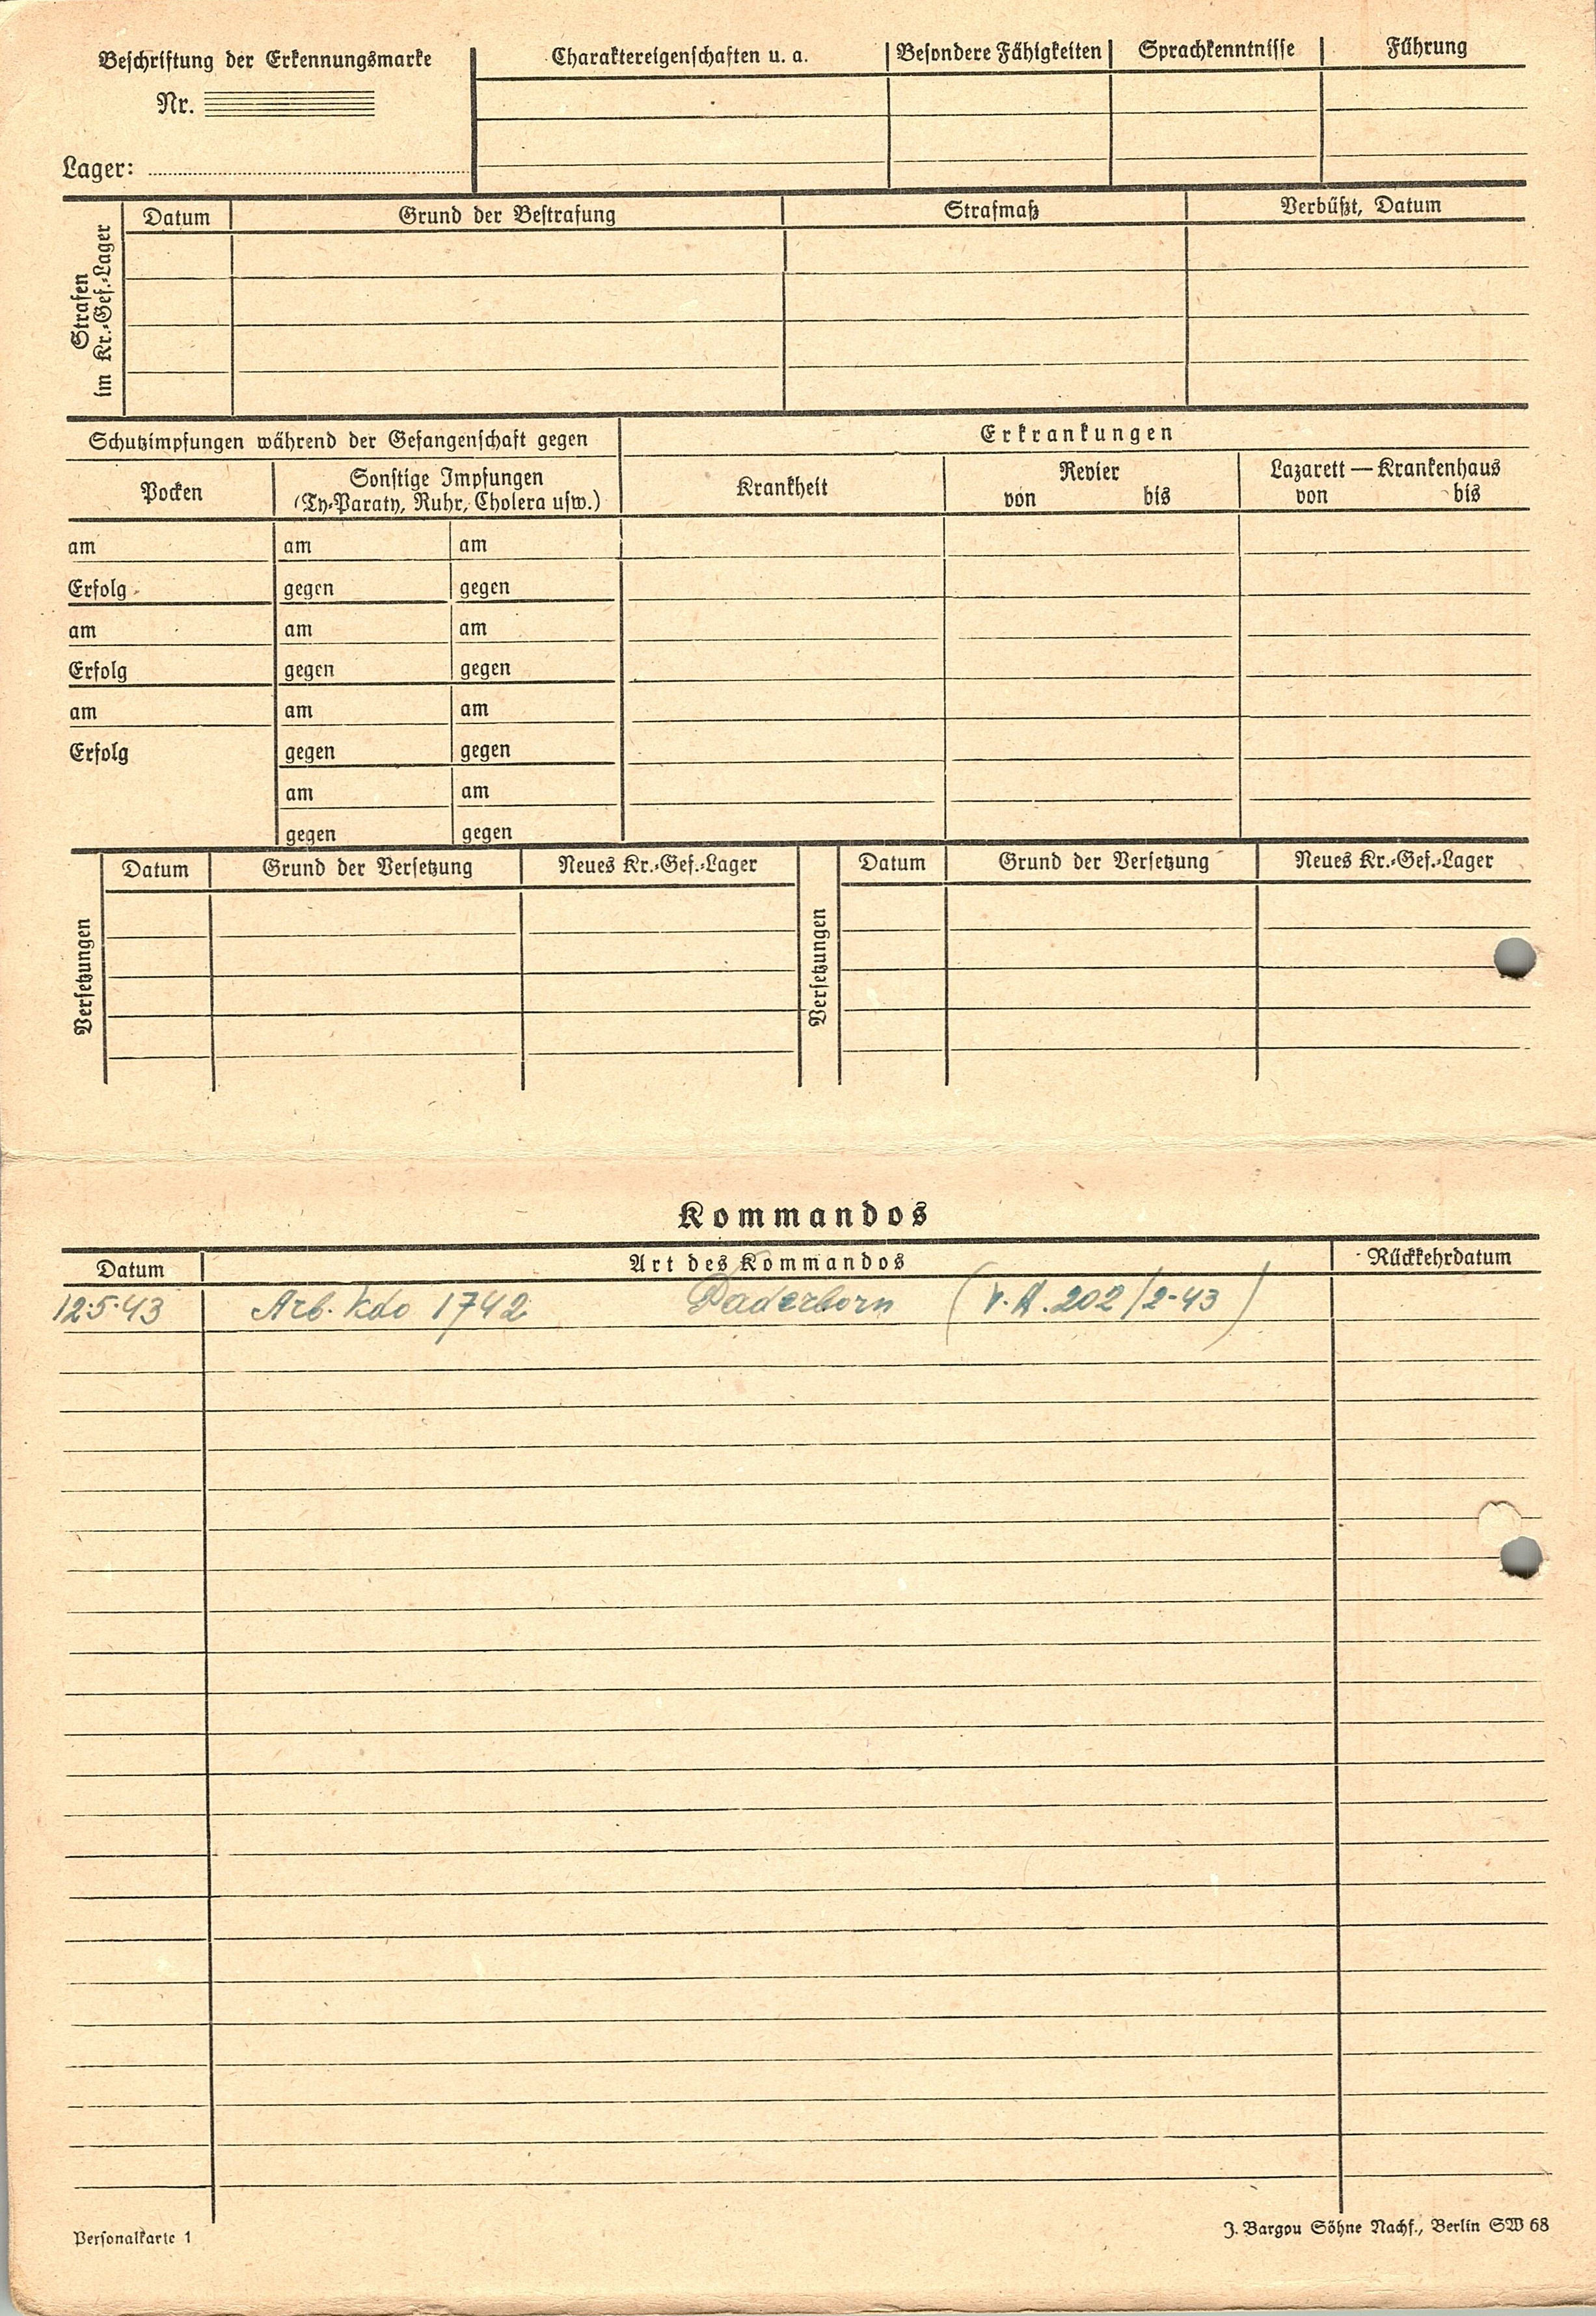 Beschriftung der Erkennungsmarke
Nr.
Lager:
Charaktereigenschaften u. a.
Besondere Fähigkeiten
Sprachkenntnisse
Führung
Strafen
im Kr.-Gef.-Lager
Datum
Grund der Bestrafung
Strafmaß
Verbüßt, Datum
Schutzimpfungen während der Gefangenschaft gegen
Erkrankungen
Pocken
Sonstige Impfungen
(Ty-Paraty, Ruhr, Cholera usw.)
Krankheit
Revier
von bis
Lazarett — Krankenhaus
von bis
am am am
Erfolg gegen gegen
am am am
Erfolg gegen gegen
am am am
Erfolg gegen gegen
am am
gegen gegen
Versetzungen
Datum Grund der Versetzung Neues Kr.-Gef.-Lager
Versetzungen
Datum Grund der Versetzung Neues Kr.-Gef.-Lager
Kommandos
Datum Art des Kommandos Rückkehrdatum
12.5.43 Arb. Kdo 1742 Paderborn (V.A. 202/2-43)
Personalkarte 1
J. Bargou Söhne Nachf., Berlin SW 68